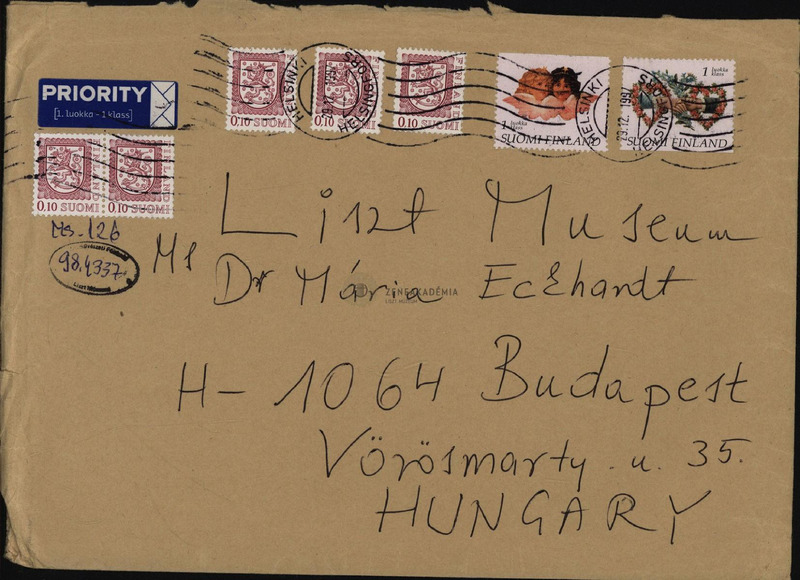 PRIORITY
[1. luokka - 1 klass]
0.10 SUOMI
0.10 SUOMI
0.10 SUOMI
1 luokka klass
SUOMI FINLAND
1 luokka klass
SUOMI FINLAND
HELSINKI
HELSINGFORS
HELSINKI
29.12.1997
0.10 SUOMI
0.10 SUOMI
Ms-126
98.4337
Liszt Museum
Ms
Dr Mária Eckhardt
ZENEAKADÉMIA
LISZT MUSEUM
H-1064 Budapest
Vörösmarty u. 35.
HUNGARY